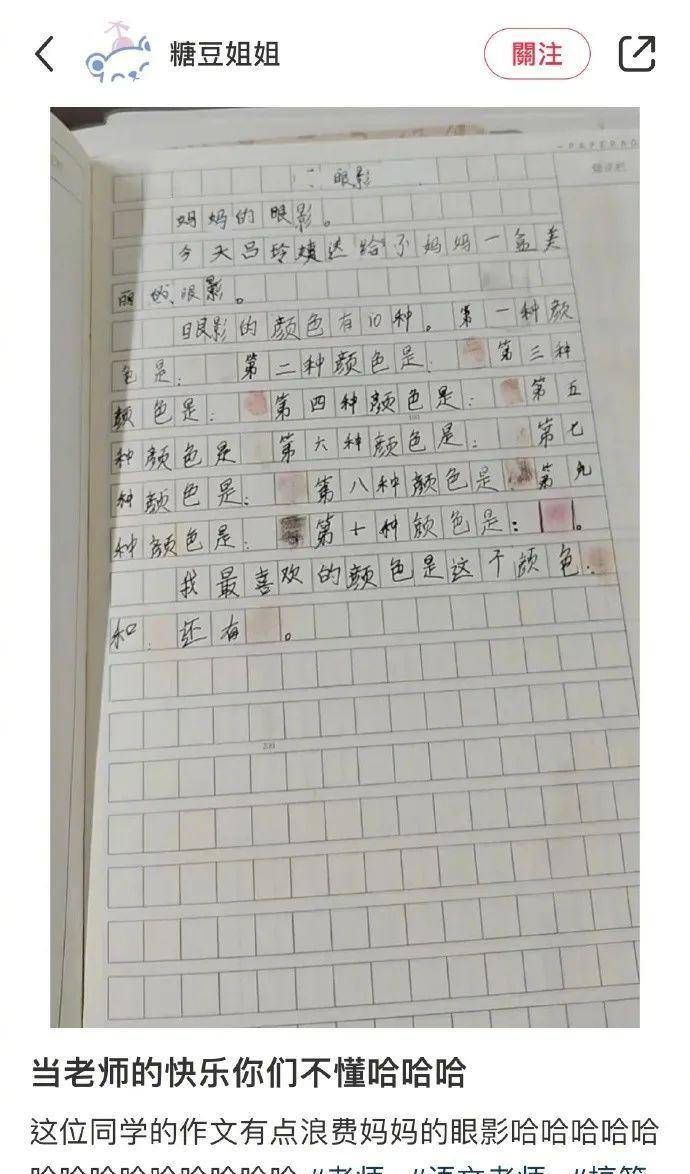 糖豆姐姐
關注
PAPERBO
二、眼影
妈妈的眼影。
今天吕玲婕送给了妈妈一盒美
丽的眼影。
眼影的颜色有10种。第一种颜
色是： 第二种颜色是： 第三种
颜色是： 第四种颜色是： 第五
种颜色是 第六种颜色是： 第七
种颜色是： 第八种颜色是 第九
种颜色是： 第十种颜色是： 。
我最喜欢的颜色是这个颜色：
和： 还有 。
200
当老师的快乐你们不懂哈哈哈
这位同学的作文有点浪费妈妈的眼影哈哈哈哈哈
哈哈哈哈哈哈哈哈哈 #老师 #语文老师 #搞笑